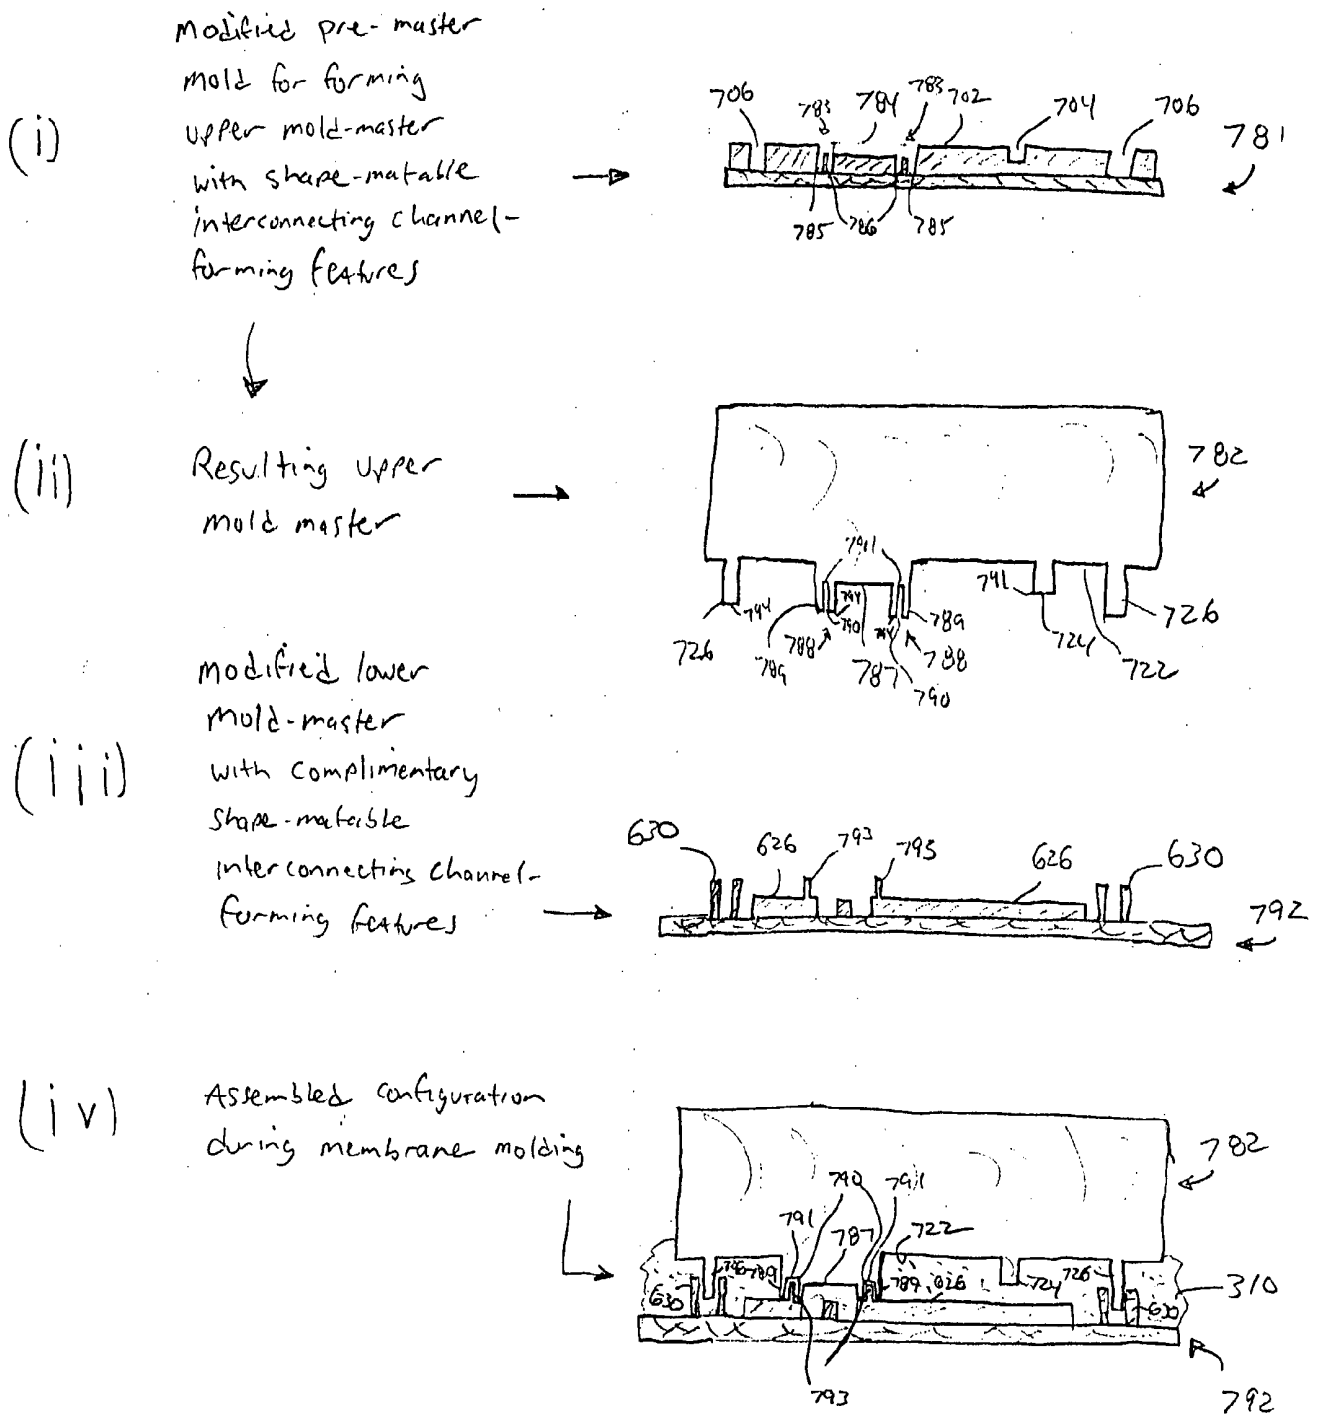 (i)
Modified pre-master
mold for forming
upper mold-master
with shape-matable
interconnecting channel-
forming features
706 783 784 783 702 704 706 781
785 786 785
(ii)
Resulting upper
mold master
782
791
794 794 794 741
726 789 788 790 787 790 788 789 724 722 726
(iii)
modified lower
mold-master
with complimentary
shape-matable
interconnecting channel-
forming features
630 626 793 793 626 630
792
(iv)
Assembled configuration
during membrane molding
782
790 791
791 787 722
726 789 789 626 724 726 310
630 630
793
792